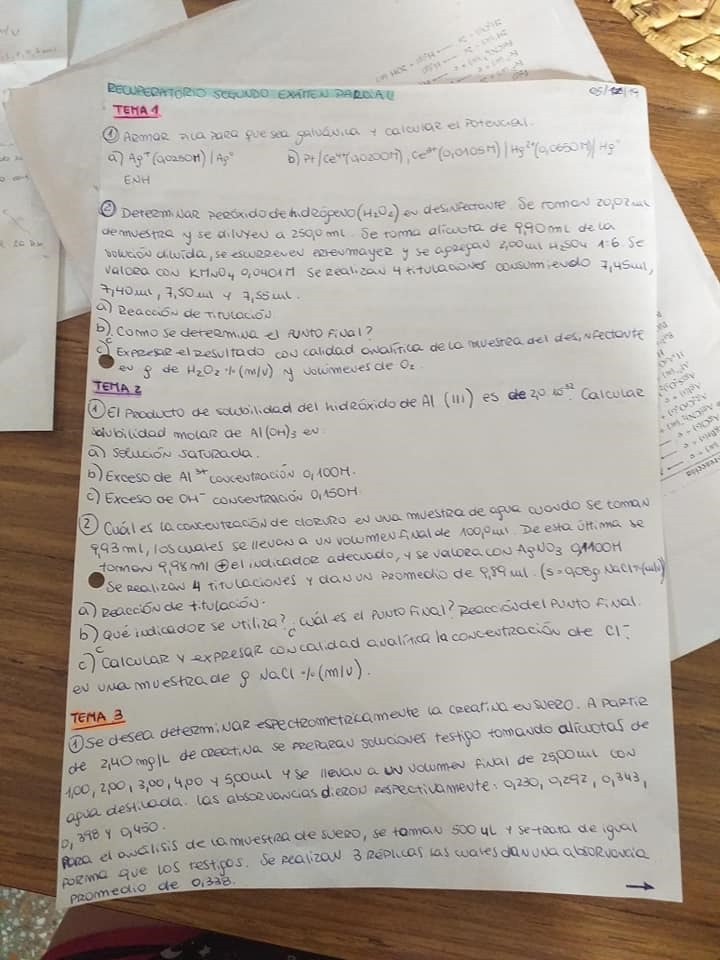 RECUPERATORIO SEGUNDO EXAMEN PARCIAL 05/12/19
TEMA 1
① ARMAR PILA PARA QUE SEA GALVÁNICA Y CALCULAR EL POTENCIAL.
a) Ag⁺ (0,0250M) | Ag⁰ b) Pt/Ce⁴⁺(0,0200M), Ce³⁺(0,0105M) | Hg²⁺(0,0650M) | Hg⁰
ENH
② Determinar peróxido de hidrógeno (H₂O₂) en desinfectante. Se toman 20,02 mL
de muestra y se diluyen a 250,0 mL. Se toma alícuota de 9,90 mL de la
solución diluida, se escurre en erlenmayer y se agregan 2,00 mL H₂SO₄ 1:6. Se
valora con KMnO₄ 0,0401M. Se realizan 4 titulaciones consumiendo 7,45 mL,
7,40 mL, 7,50 mL y 7,55 mL.
a) Reacción de titulación
b) ¿Como se determina el PUNTO FINAL?
c) Expresar el resultado con calidad analítica de la muestra del desinfectante
en g de H₂O₂ % (m/v) y volúmenes de O₂.
TEMA 2
① El producto de solubilidad del hidróxido de Al (III) es de 2,0 . 10⁻³². Calcular
solubilidad molar de Al(OH)₃ en
a) Solución saturada.
b) Exceso de Al³⁺ concentración 0,100M.
c) Exceso de OH⁻ concentración 0,150M.
② Cuál es la concentración de cloruro en una muestra de agua cuando se toman
9,93 mL, los cuales se llevan a un volumen final de 100,0 mL. De esta última se
toman 9,98 ml ⊕ el indicador adecuado, y se valora con AgNO₃ 0,1100M
Se realizan 4 titulaciones y dan un promedio de 9,89 mL. (s = 0,08 g NaCl % (m/v))
a) Reacción de titulación.
b) ¿Qué indicador se utiliza? ¿Cuál es el PUNTO FINAL? Reacción del PUNTO FINAL.
c) Calcular y expresar con calidad analítica la concentración de Cl⁻
en una muestra de g NaCl % (m/v).
TEMA 3
① Se desea determinar espectrometricamente la creatina en suero. A partir
de 2,40 mg/L de creatina se preparan soluciones testigo tomando alícuotas de
1,00, 2,00, 3,00, 4,00 y 5,00 mL y se llevan a un volumen final de 25,00 mL con
agua destilada. Las absorvancias dieron respectivamente: 0,230, 0,292, 0,343,
0,398 y 0,450.
Para el análisis de la muestra de suero, se toman 500 µL y se trata de igual
forma que los testigos. Se realizan 3 réplicas las cuales dan una absorvancia
promedio de 0,338.